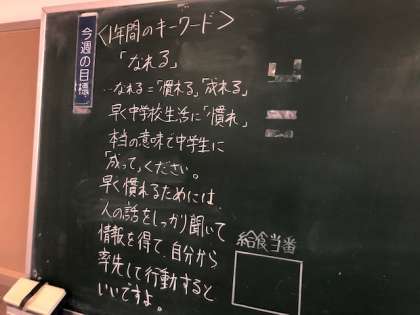 今週の目標
<1年間のキーワード>
「なれる」
・なれる=「慣れる」「成れる」
早く中学校生活に「慣れ」
本当の意味で中学生に
「成って」ください。
早く慣れるためには、
人の話をしっかり聞いて
情報を得て、自分から
率先して行動すると
いいですよ。
給食当番